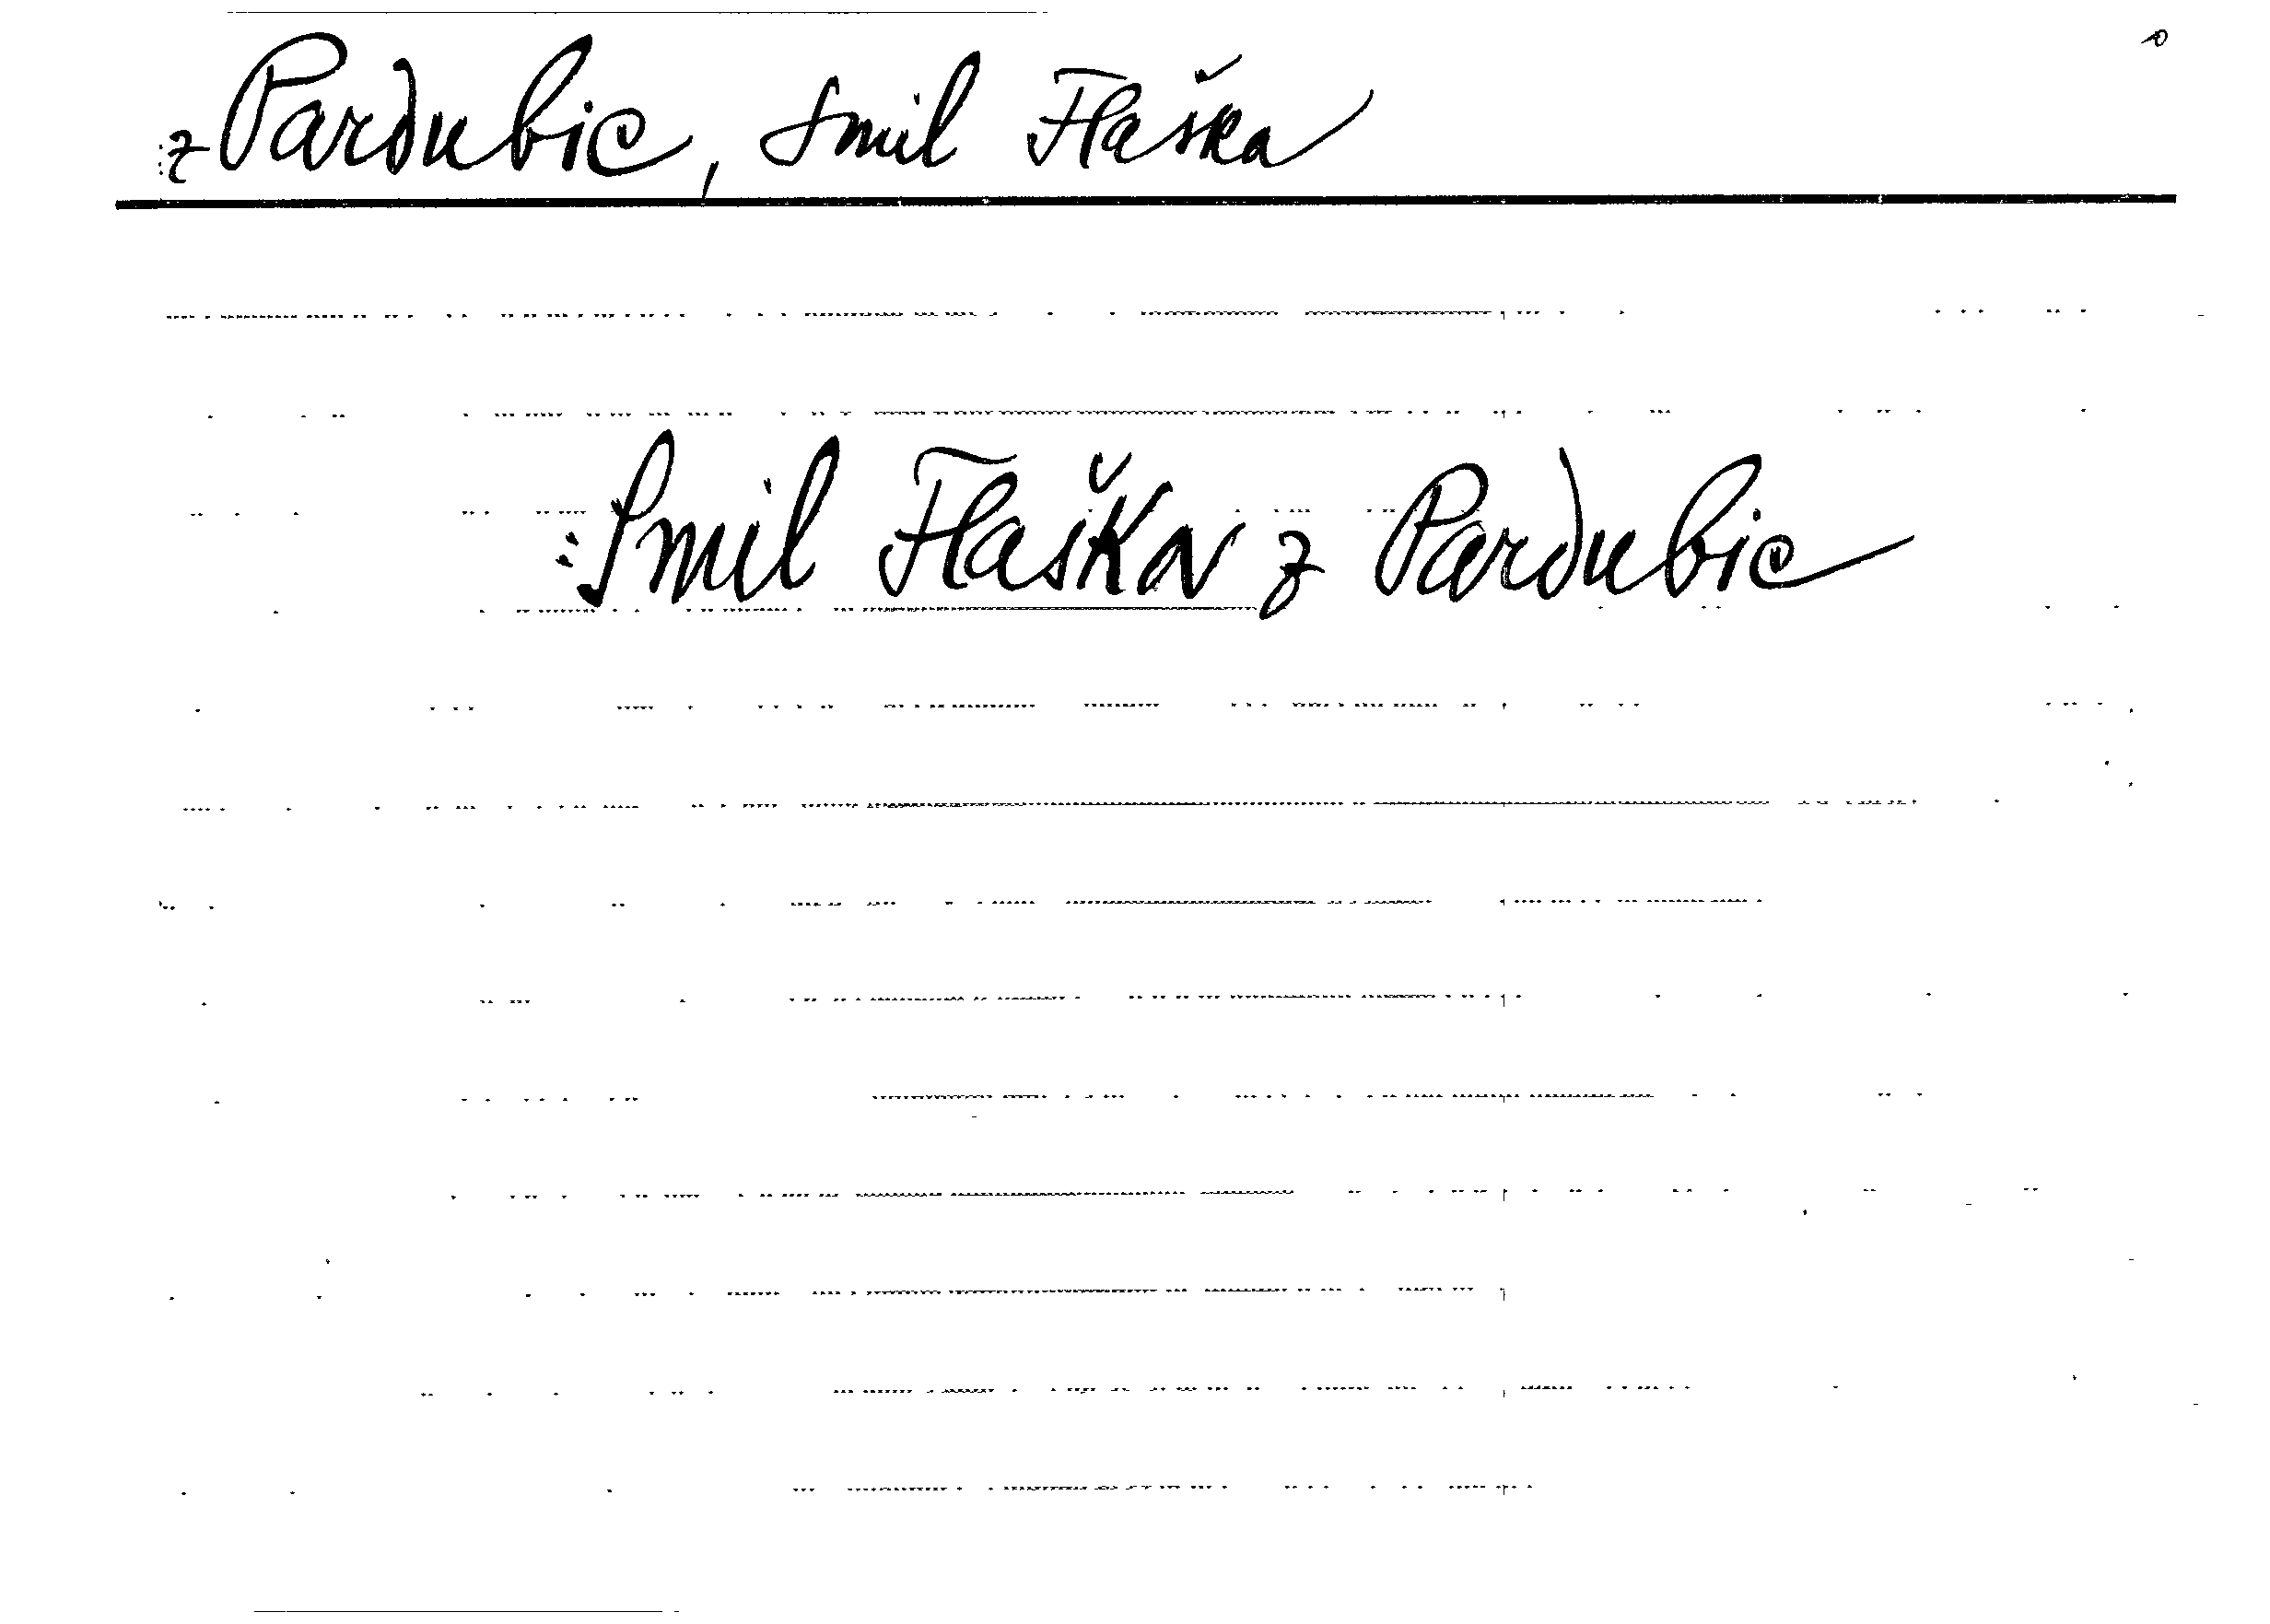 z Pardubic, Smil Flaška
Smil Flaška z Pardubic